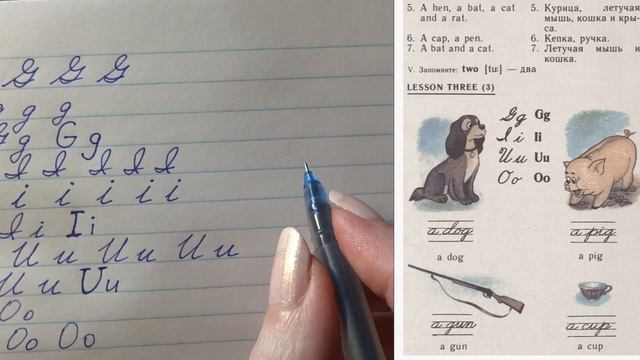 G G G
g g g
g G g
I I I I I
i i i i i
I i I i
U u U u U u
U u U u
O o
O o O o
5. A hen, a bat, a cat and a rat.
6. A cap, a pen.
7. A bat and a cat.
5. Курица, летучая мышь, кошка и крыса.
6. Кепка, ручка.
7. Летучая мышь и кошка.
V. Запомните: two [tu:] — два
LESSON THREE (3)
Gg Gg
Ii Ii
Uu Uu
Oo Oo
a dog
a dog
a pig
a pig
a gun
a gun
a cup
a cup